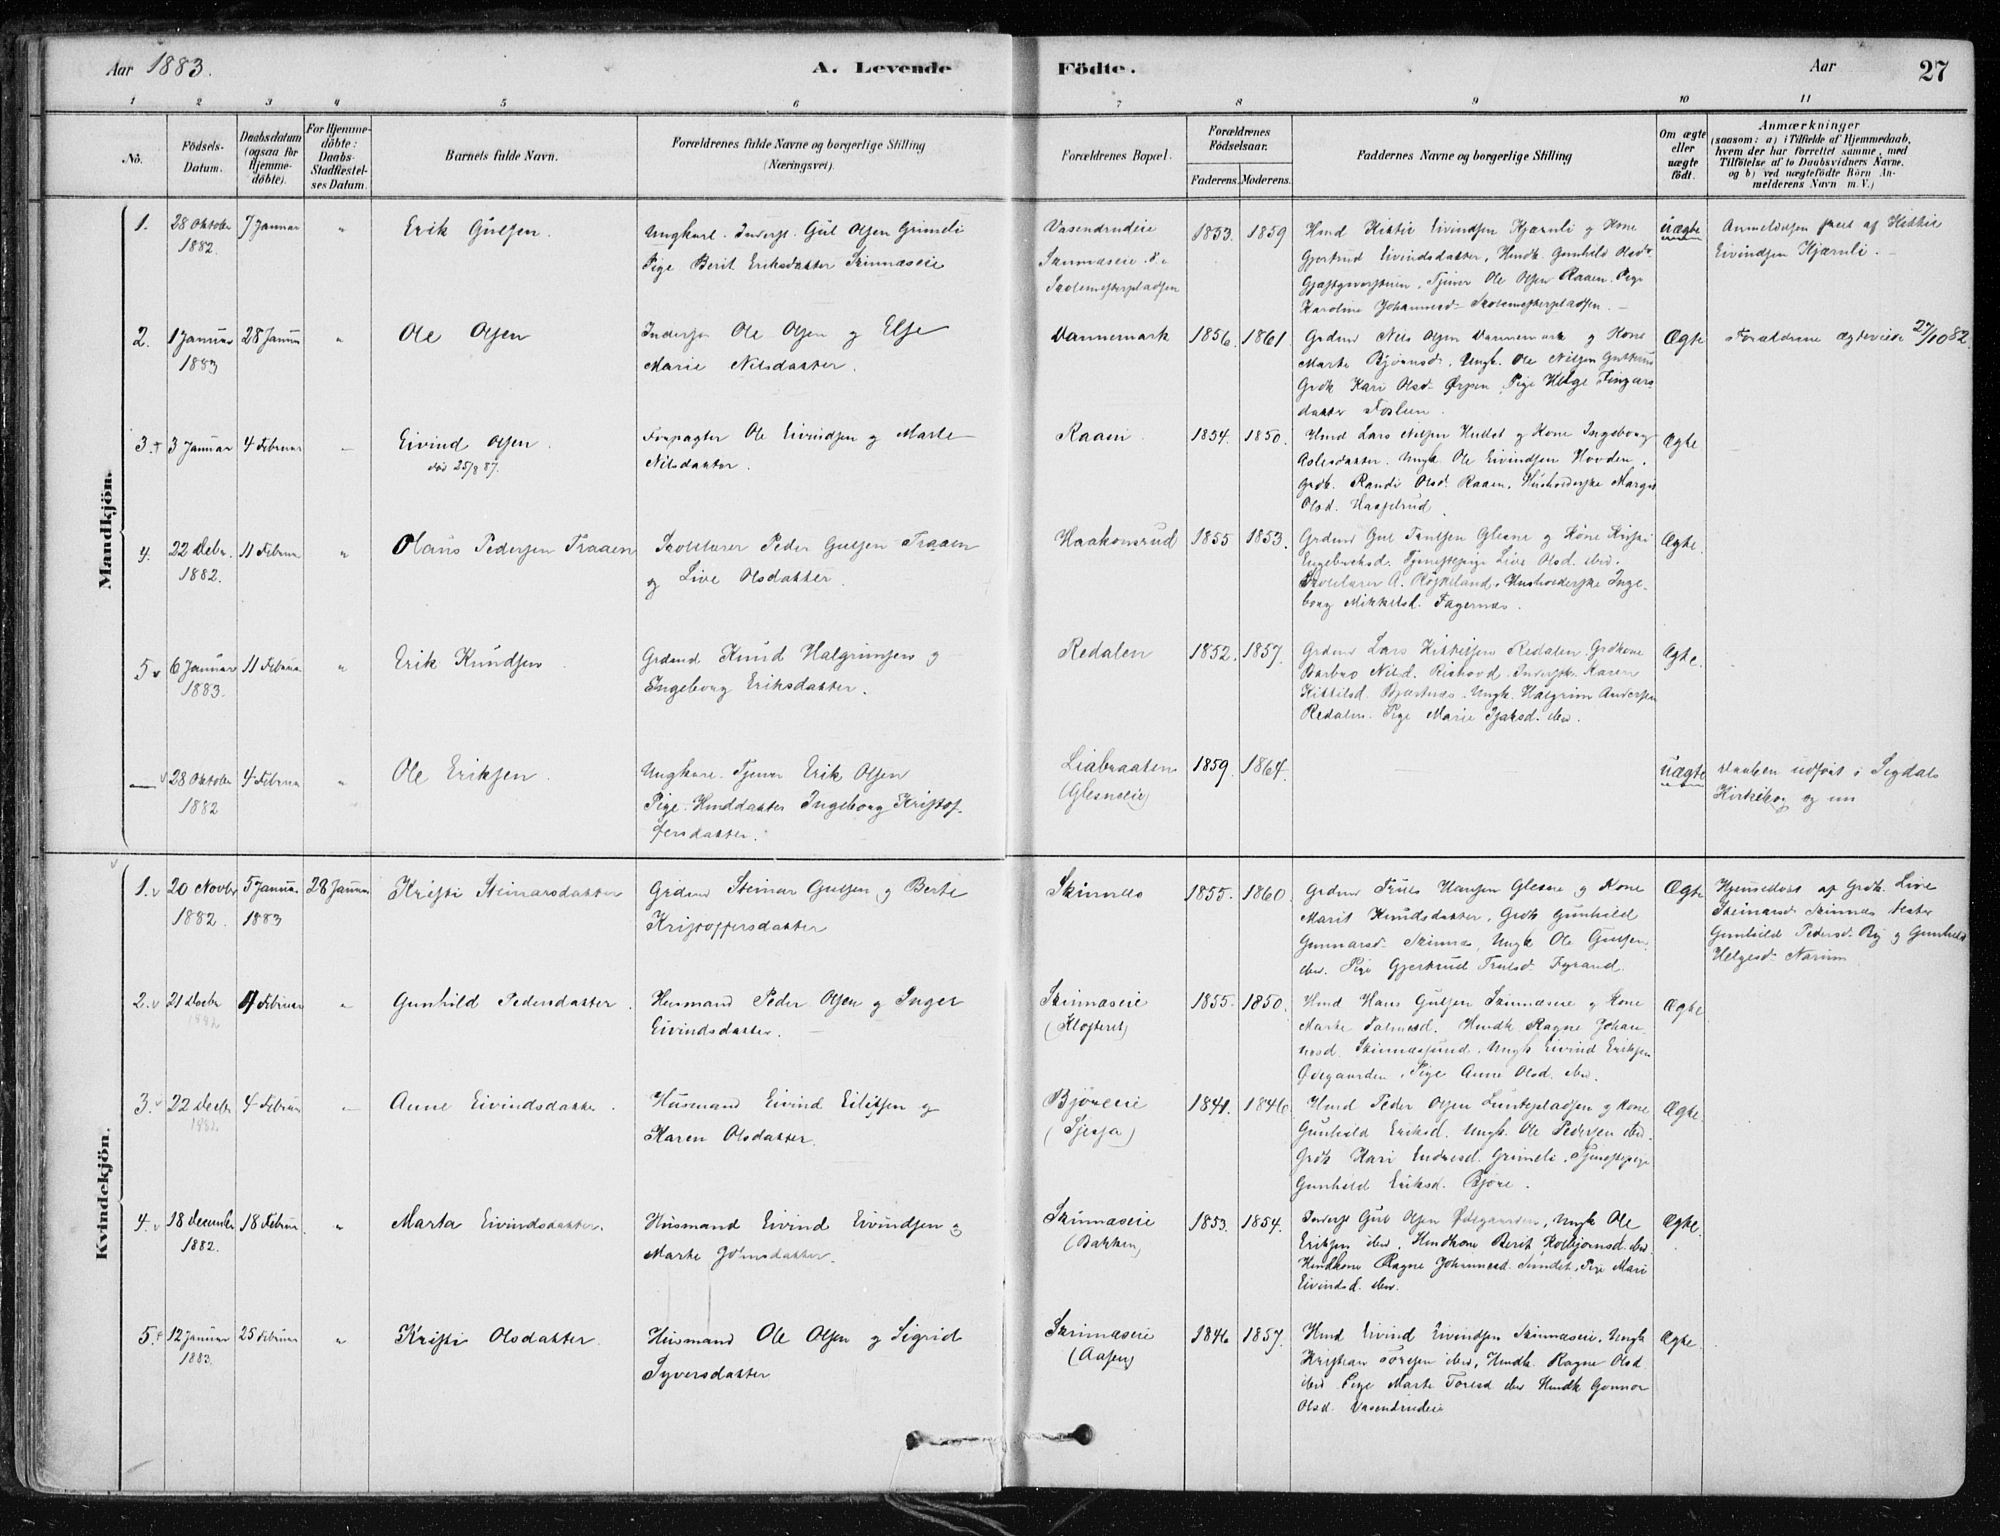 Aar 1883.
A. Levende Födte.
Aar
27
1 2 3 4 5 6 7 8 9 10 11
No.
Födsels-Datum.
Daabsdatum (ogsaa for Hjemme-döbte).
For Hjemme-döbte: Daabs-Stadfæstel-ses Datum.
Barnets fulde Navn.
Forældrenes fulde Navne og borgerlige Stilling (Næringsvei).
Forældrenes Bopæl.
Forældrenes Födselsaar.
Faderens. Moderens.
Faddernes Navne og borgerlige Stilling
Om ægte eller uægte födt.
Anmærkninger
(saasom: a) i Tilfælde af Hjemmedaab, hvem der har forrettet samme, med Tilföielse af to Daabsvidners Navne. og b) ved uægtefödte Börn An-melderens Navn m. V.)
Mandkjön.
1. 28 Oktober 1882 7 Januar " Erik Gulsen.
Ungkarl. Inderst. Gul Olsen Grimeli
Pige Berit Eriksdatter Skinnæseie
Vasendrudeie
Skinnæseie
Skolemesterpladsen
1853. 1859
Hmd Kittil Eivindsen Kjærnli g Kone
Gjertrud Eivindsdatter, Hmdk. Gunhild Olsd.
Tjener Ole Olsen Raaen. Pige
Karoline Johannesd. Skolemesterpladsen.
uægte
Anmeldelsen af Kittil
Eivindsen Kjærnli.
2. 1 Januar 1883 28 Januar " Ole Olsen
Inderst Ole Olsen g Else
Marie Nilsdatter.
Vannemark 1856. 1861.
Grdmd Nils Olsen Vannemark g Kone
Marte Bjørnsd. Ungk. Ole Nilsen
Grdk Kari Olsd. Ørpen, Pige Helge
datter Foslien.
Ægte
Forældrene ægteviede 27/10 82.
3. 3 Januar 4 Februar – Eivind Olsen.
død 25/8 87.
Forpagter Ole Eivindsen g Marte
Nilsdatter.
Raaen 1854. 1850.
Hmd Lars Nilsen g Kone Ingeborg
Aslesdatter. Ungk Ole Eivindsen Hovden.
grdk. Randi Olsd. Raaen, Husholderske Margit
Olsd. Haagelrud
Ægte
4. 22 Debr. 1882. 11 Februar " Olaus Pedersen Traaen
Skolelærer Peder Gulsen Traaen
g Live Olsdatter.
Haakonsrud 1855 1853.
Grdmd Gul Glesne g Kone Kristi
Engebrektsd. Tjenestepige Live Olsd. ibid.
Skolelærer A. Røiseland, Husholderske Inge
borg Mikkelsd. Fagernæs.
Ægte.
5. 6 Januar 1883. 11 Februar " Erik Knudsen
Grdmd Knud Halgrimsen g
Ingeborg Eriksdatter.
Redalen 1852. 1857.
Grdmd Lars Kittilsen Redalen. Grdkone
Barbro Nilsd. Rishovd. Karen
Kittilsd. Bjertnæs. Ungk. Halgrim Andersen
Redalen. Pige Marie ibid.
Ægte.
— 28 Oktober 1882 4 Februar " Ole Eriksen.
Ungkarl. Tjener Erik Olsen
Pige. Hmddatter Ingeborg Kristof-
fersdatter.
Liabraaten
(Glesneeie)
1859. 1864.
uægte
Daaben udført i Sigdals
Kirkebog
Kvindekjön.
1. 20 Novbr 1882. 5 Januar 1883 28 Januar Kristi Steinarsdatter
Grdmd Steinar Gulsen g Berte
Kristoffersdatter
Skinnes 1855. 1860.
Grdmd Truls Hansen Glesne g Kone
Marit Knudsdatter, Grdk Gunhild
Gunnarsd. Skinnæs, Ungk Ole Gulsen
ibid. Pige Gjertrud Trulsd. Fyrand.
Ægte
Hjemmedøbt af Grdk. Live
Steinarsd. Skinnæs
Gunhild Pedersd. By g Gunhild
Helgesd. Narum
2. 21 Debr 1882 4 Februar " Gunhild Pedersdatter
Husmand Peder Olsen g Inger
Eivindsdatter.
Skinnæseie
(Klofteret)
1855. 1850.
Hmd Hans Gulsen Skinnæseie g Kone
Marte Salmesd. Hmdk Ragne Johan-
nesd. Skinnæssund, Ungk Eivind Eriksen
Ødegaarden, Pige Anne Olsd. ibid.
Ægte.
3. 22 Decbr 1882 4 Februar – Anne Eivindsdatter.
Husmand Eivind Eilifsen g
Karen Olsdatter.
Bjøreeie
1841. 1846.
Hmd Peder Olsen g Kone
Gunhild Eriksd. Ungk. Ole Pedersen ibid.
Grdk Kari Endresd. Grimeli. Tjenestepige
Gunhild Eriksd. Bjøre.
Ægte.
4. 18 December 1882. 18 Februar " Marta Eivindsdatter.
Husmand Eivind Eivindsen g
Marte Johnsdatter.
Skinnæseie
(Bakken)
1853. 1854.
Inderst Gul Olsen Ødegaarden, Ungk Ole
Eriksen ibid, Hmdkone Berit Kolbjørnsd. ibid.
Hmdkone Ragne Johannesd. Sundet, Pige Mari
Eivindsd. ibid.
Ægte.
5. 12 Januar 1883. 25 Februar " Kristi Olsdatter.
Husmand Ole Olsen g Sigrid
Syversdatter
Skinnæseie
(Aasen)
1846 1857.
Hmd Eivind Eivindsen Skinnæseie, Ungk
Kristian Toresen ibid, Hmdk. Ragne Olsd.
ibid Pige Marte Toresd ibid Hmdk Gonnor
Olsd. Vasendrudeie
Ægte.